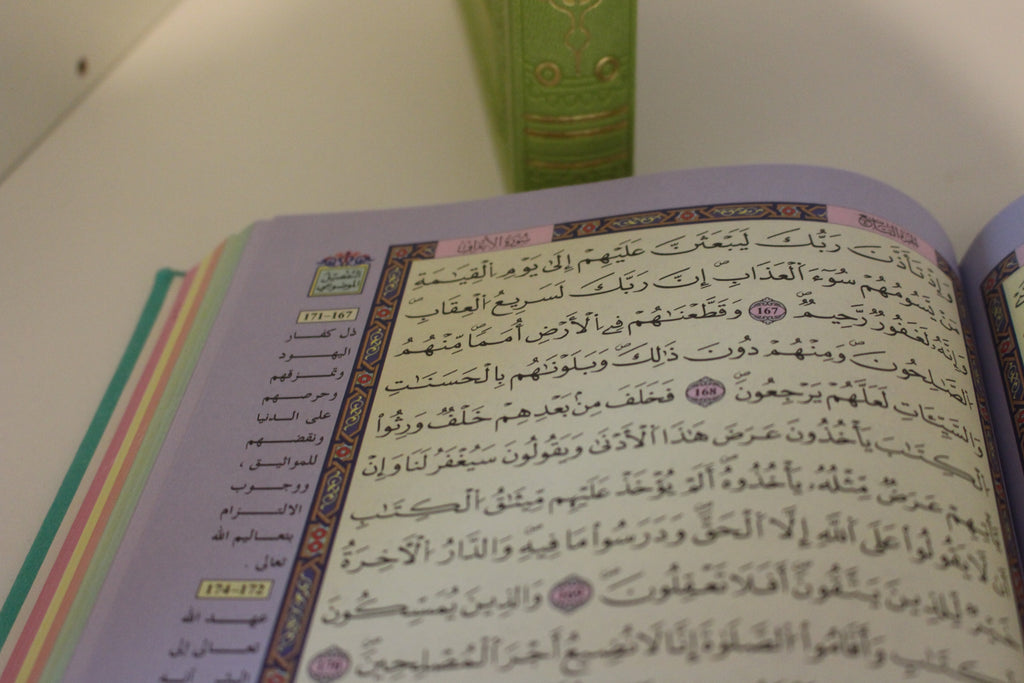 سُورَةُ الْأَعْرَافِ
الجزء التاسع
وَإِذْ تَأَذَّنَ رَبُّكَ لَيَبْعَثَنَّ عَلَيْهِمْ إِلَىٰ يَوْمِ ٱلْقِيَٰمَةِ
مَن يَسُومُهُمْ سُوٓءَ ٱلْعَذَابِ ۗ إِنَّ رَبَّكَ لَسَرِيعُ ٱلْعِقَابِ ۖ
وَإِنَّهُۥ لَغَفُورٌ رَّحِيمٌ 167 وَقَطَّعْنَٰهُمْ فِى ٱلْأَرْضِ أُمَمًا ۖ مِّنْهُمُ
ٱلصَّٰلِحُونَ وَمِنْهُمْ دُونَ ذَٰلِكَ ۖ وَبَلَوْنَٰهُم بِٱلْحَسَنَٰتِ
وَٱلسَّيِّـَٔاتِ لَعَلَّهُمْ يَرْجِعُونَ 168 فَخَلَفَ مِنۢ بَعْدِهِمْ خَلْفٌ وَرِثُوا۟
ٱلْكِتَٰبَ يَأْخُذُونَ عَرَضَ هَٰذَا ٱلْأَدْنَىٰ وَيَقُولُونَ سَيُغْفَرُ لَنَا وَإِن
يَأْتِهِمْ عَرَضٌ مِّثْلُهُۥ يَأْخُذُوهُ ۚ أَلَمْ يُؤْخَذْ عَلَيْهِم مِّيثَٰقُ ٱلْكِتَٰبِ
أَن لَّا يَقُولُوا۟ عَلَى ٱللَّهِ إِلَّا ٱلْحَقَّ وَدَرَسُوا۟ مَا فِيهِ ۗ وَٱلدَّارُ ٱلْءَاخِرَةُ
خَيْرٌ لِّلَّذِينَ يَتَّقُونَ ۗ أَفَلَا تَعْقِلُونَ 169 وَٱلَّذِينَ يُمَسِّكُونَ
بِٱلْكِتَٰبِ وَأَقَامُوا۟ ٱلصَّلَوٰةَ إِنَّا لَا نُضِيعُ أَجْرَ ٱلْمُصْلِحِينَ 170
التفصيل
الموضوعي
171-167
ذل كفار
اليهود
وتمزقهم
وحرصهم
على الدنيا
ونقضهم
للمواثيق ،
ووجوب
الالتزام
بتعاليم الله
تعالى .
174-172
عهد الله
تعالى إلى